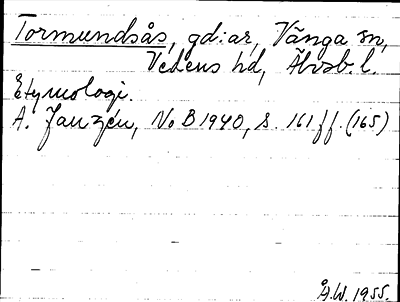 Tormundsås, gd:ar, Vånga sn,
Vedens hd, Älvsb. l.
Etymologi.
A. Janzén, No B 1940, s. 161 ff. (165)
Å.W. 1955.